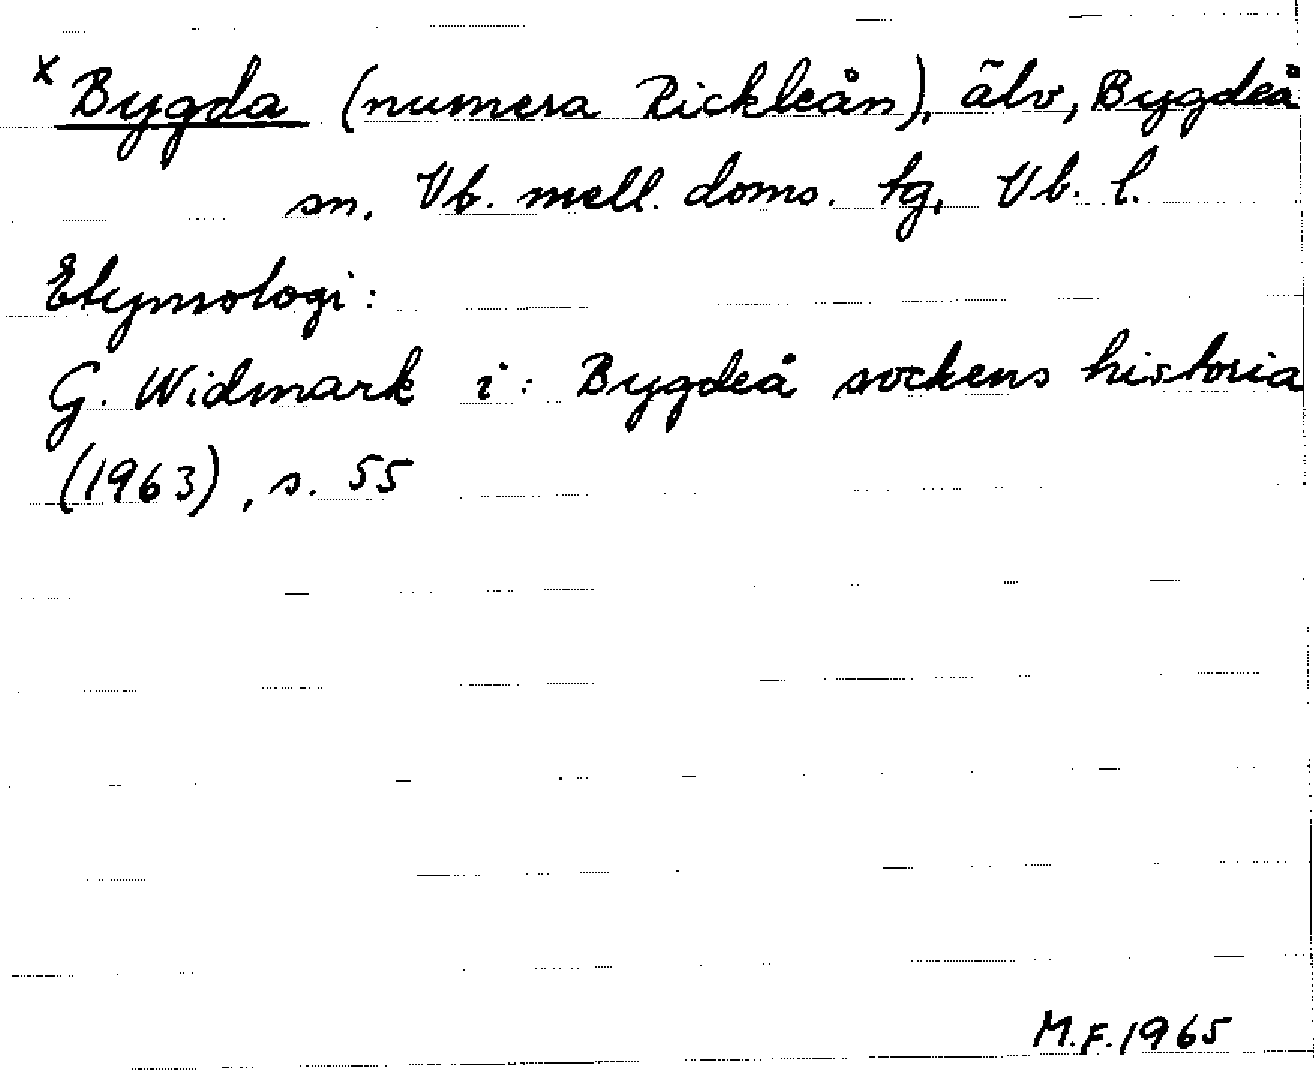 x Bygda (numera Rickleån), älv, Bygdeå
sn. Vb. mell. doms. tg, Vb. l.
Etymologi:
G. Widmark i: Bygdeå sockens historia
(1963), s. 55
M.F. 1965